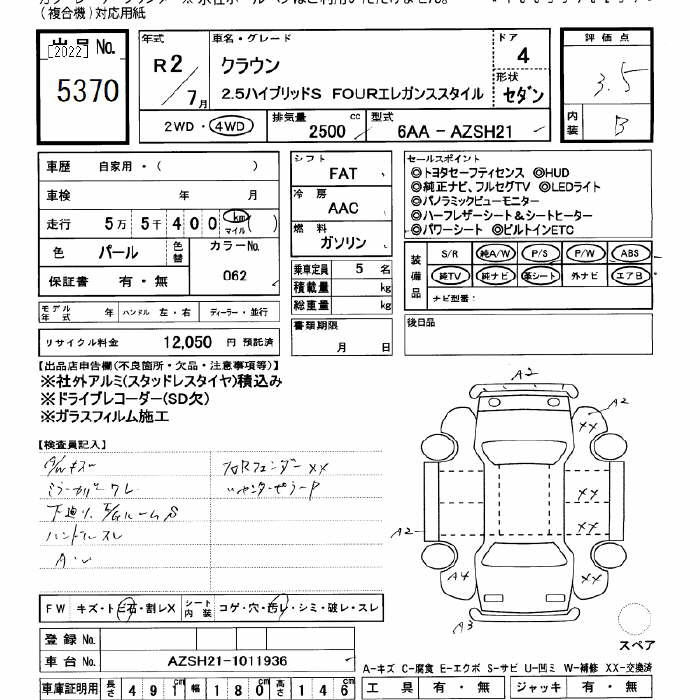 (複合機)対応用紙
出品 No.
[2022]
5370
年式
R2/7月
車名・グレード
クラウン
2.5ハイブリッドS FOURエレガンススタイル
ドア
4
形状
セダン
2WD・4WD
排気量
2500 cc
型式
6AA - AZSH21
評価点
3.5
内装
B
車歴 自家用・( )
車検 年 月
走行 5万 5千 400 km マイル ( )
色 パール 色替 カラーNo. 062
保証書 有・無
モデル年式 年 ハンドル 左・右 ディーラー・並行
リサイクル料金 12,050 円 預託済
シフト
FAT
冷房
AAC
燃料
ガソリン
乗車定員 5 名
積載量 kg
総重量 kg
書類期限
月 日
セールスポイント
◎トヨタセーフティセンス ◎HUD
◎純正ナビ、フルセグTV ◎LEDライト
◎パノラミックビューモニター
◎ハーフレザーシート&シートヒーター
◎パワーシート ◎ビルトインETC
装備品
S/R 純A/W P/S P/W ABS
純TV 純ナビ 革シート 外ナビ エアB
ナビ型番:
後日品
【出品店申告欄(不良箇所・欠品・注意事項等)】
※社外アルミ(スタッドレスタイヤ)積込み
※ドライブレコーダー(SD欠)
※ガラスフィルム施工
【検査員記入】
A/Wキズ
ミラーカバーワレ
下廻り、E/Gルーム S
ハンドルスレ
フロRフェンダー XX
A2
A2
XX
XX
XX
A2
A4
XX
A3
スペア
FW キズ・トビ石・割レX シート内装 コゲ・穴・汚レ・シミ・破レ・スレ
登録 No.
車台 No. AZSH21-1011936
車庫証明用 長さ 491 幅 180 高さ 146
A-キズ C-腐食 E-エクボ S-サビ U-凹ミ W-補修 XX-交換済
工具 有・無 ジャッキ 有・無